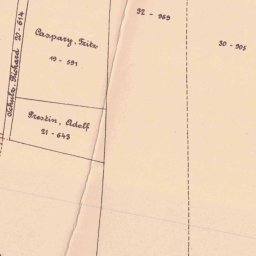 Schulz, Richard 20-614
Caspary, Fritz
19 - 591
Prestin, Adolf
21 - 643
92 - 969
90 - 905